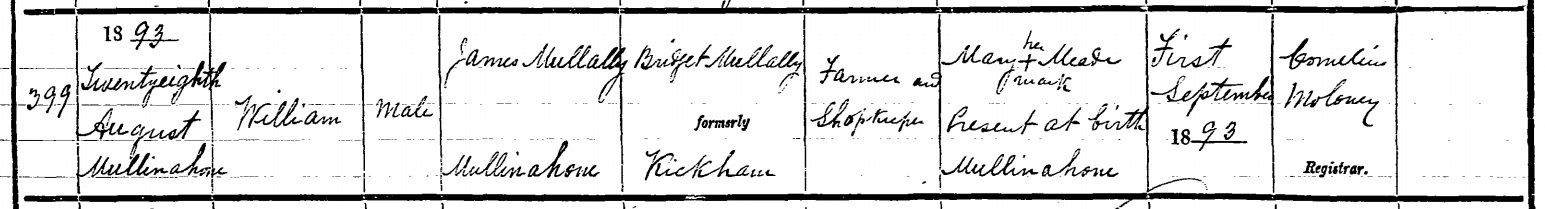 399
1893
Twentyeighth
August
Mullinahone
William
Male
James Mullally
Mullinahone
Bridget Mullally
formerly
Kickham
Farmer and
Shopkeeper
Mary her + mark Meade
Present at birth
Mullinahone
First
September
1893
Cornelius
Moloney
Registrar.